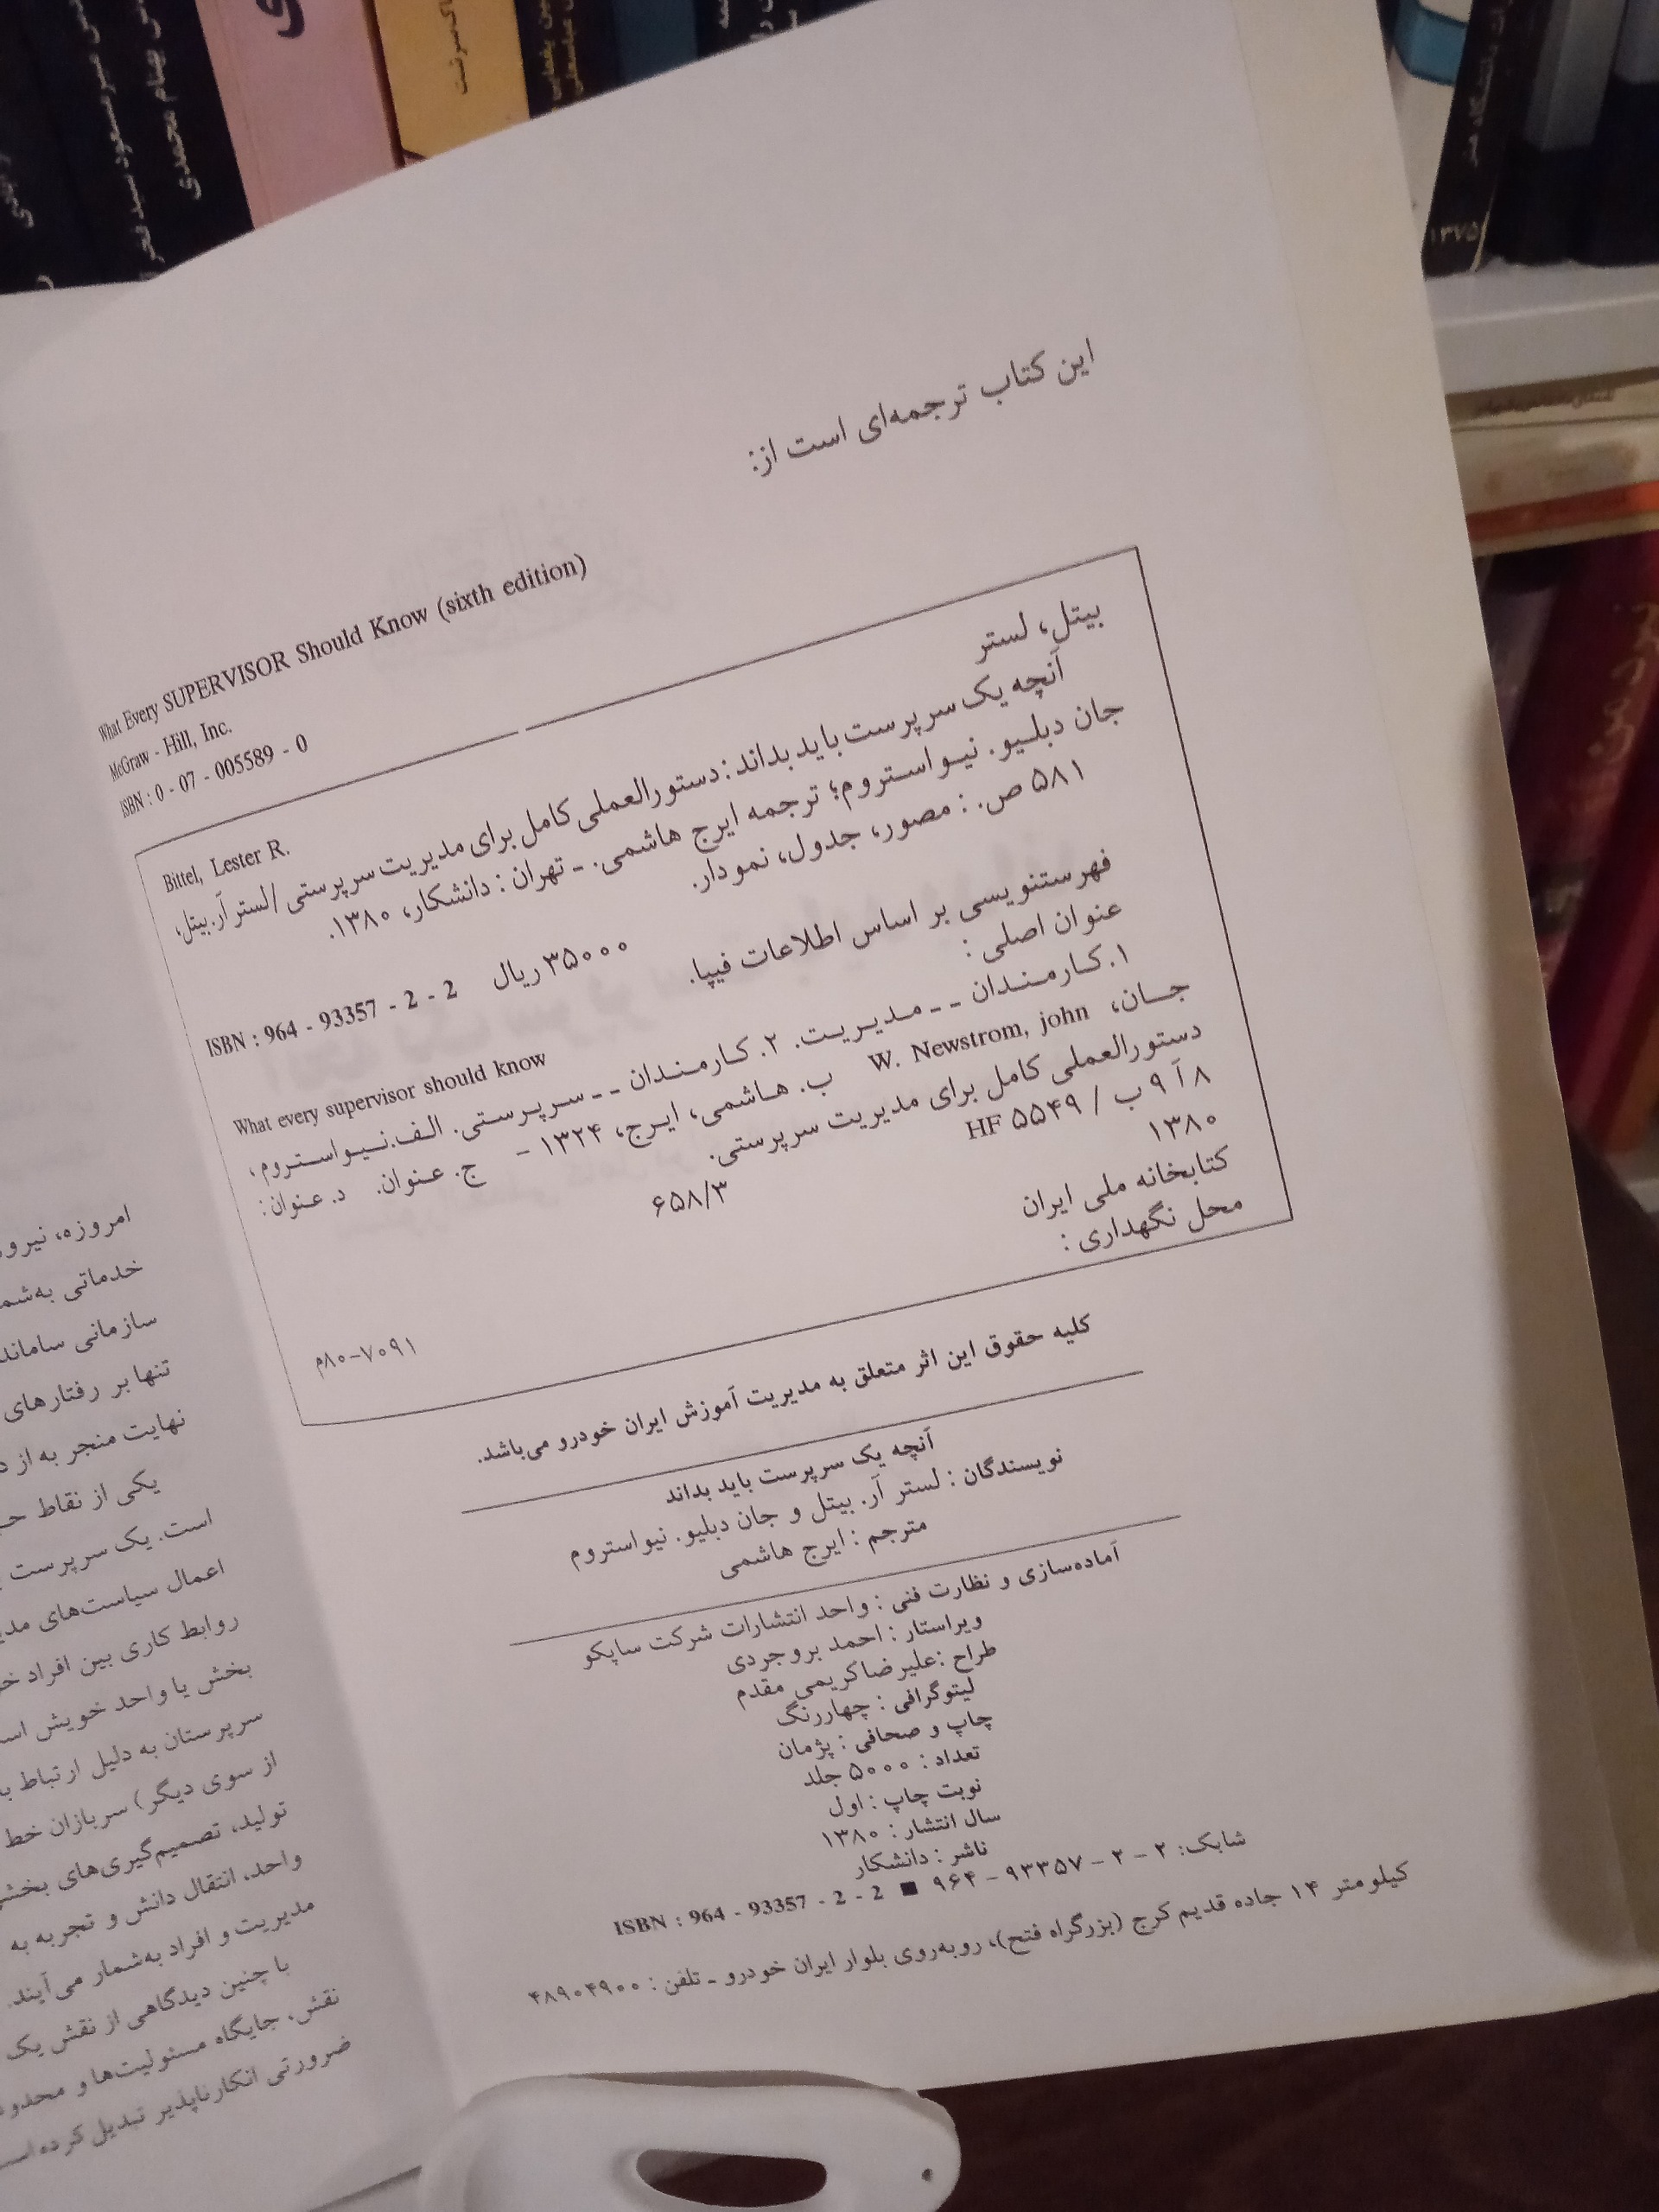 این کتاب ترجمه‌ای است از:
What Every SUPERVISOR Should Know (sixth edition)
McGraw - Hill, Inc.
ISBN : 0 - 07 - 005589 - 0
بیتل، لستر
Bittel, Lester R.
آنچه یک سرپرست باید بداند : دستورالعملی کامل برای مدیریت سرپرستی / لستر آر. بیتل،
جان دبلیو. نیواستروم؛ ترجمه ایرج هاشمی. ـ تهران : دانشکار، ۱۳۸۰.
۵۸۱ ص. : مصور، جدول، نمودار.
ISBN : 964 - 93357 - 2 - 2 ۳۵۰۰۰ ریال
فهرستنویسی بر اساس اطلاعات فیپا.
عنوان اصلی :
What every supervisor should know
۱. کارمندان - - مدیریت. ۲. کارمندان - - سرپرستی. الف. نیواستروم،
جان، W. Newstrom, john ب. هاشمی، ایرج، ۱۳۲۴ - ج. عنوان. د. عنوان:
دستورالعملی کامل برای مدیریت سرپرستی.
۸ آ ۹ ب / HF ۵۵۴۹
۶۵۸/۳
۱۳۸۰
کتابخانه ملی ایران
محل نگهداری :
م۸۰-۷۰۹۱
کلیه حقوق این اثر متعلق به مدیریت آموزش ایران خودرو می‌باشد.
آنچه یک سرپرست باید بداند
نویسندگان : لستر آر. بیتل و جان دبلیو. نیواستروم
مترجم : ایرج هاشمی
آماده‌سازی و نظارت فنی : واحد انتشارات شرکت ساپکو
ویراستار : احمد بروجردی
طراح : علیرضا کریمی مقدم
لیتوگرافی : چهاررنگ
چاپ و صحافی : پژمان
تعداد : ۵۰۰۰ جلد
نوبت چاپ : اول
سال انتشار : ۱۳۸۰
ناشر : دانشکار
شابک: ۲ - ۲ - ۹۳۳۵۷ - ۹۶۴ ■ ISBN : 964 - 93357 - 2 - 2
کیلومتر ۱۴ جاده قدیم کرج (بزرگراه فتح)، روبه‌روی بلوار ایران خودرو ـ تلفن : ۴۸۹۰۴۹۰۰
امروزه، نیرو
خدماتی به‌شم
سازمانی ساماند
تنها بر رفتارهای
نهایت منجر به از د
یکی از نقاط ح
است. یک سرپرست
اعمال سیاست‌های مدی
روابط کاری بین افراد خو
بخش یا واحد خویش اس
سرپرستان به دلیل ارتباط ب
از سوی دیگر) سربازان خط
تولید، تصمیم‌گیری‌های بخش
واحد، انتقال دانش و تجربه به
مدیریت و افراد به‌شمار می‌آیند.
با چنین دیدگاهی از نقش یک
نقش، جایگاه مسئولیت‌ها و محدود
ضرورتی انکارناپذیر تبدیل کرده اس
بهنام محمدی
دانشگاه هنر
۱۳۷۵